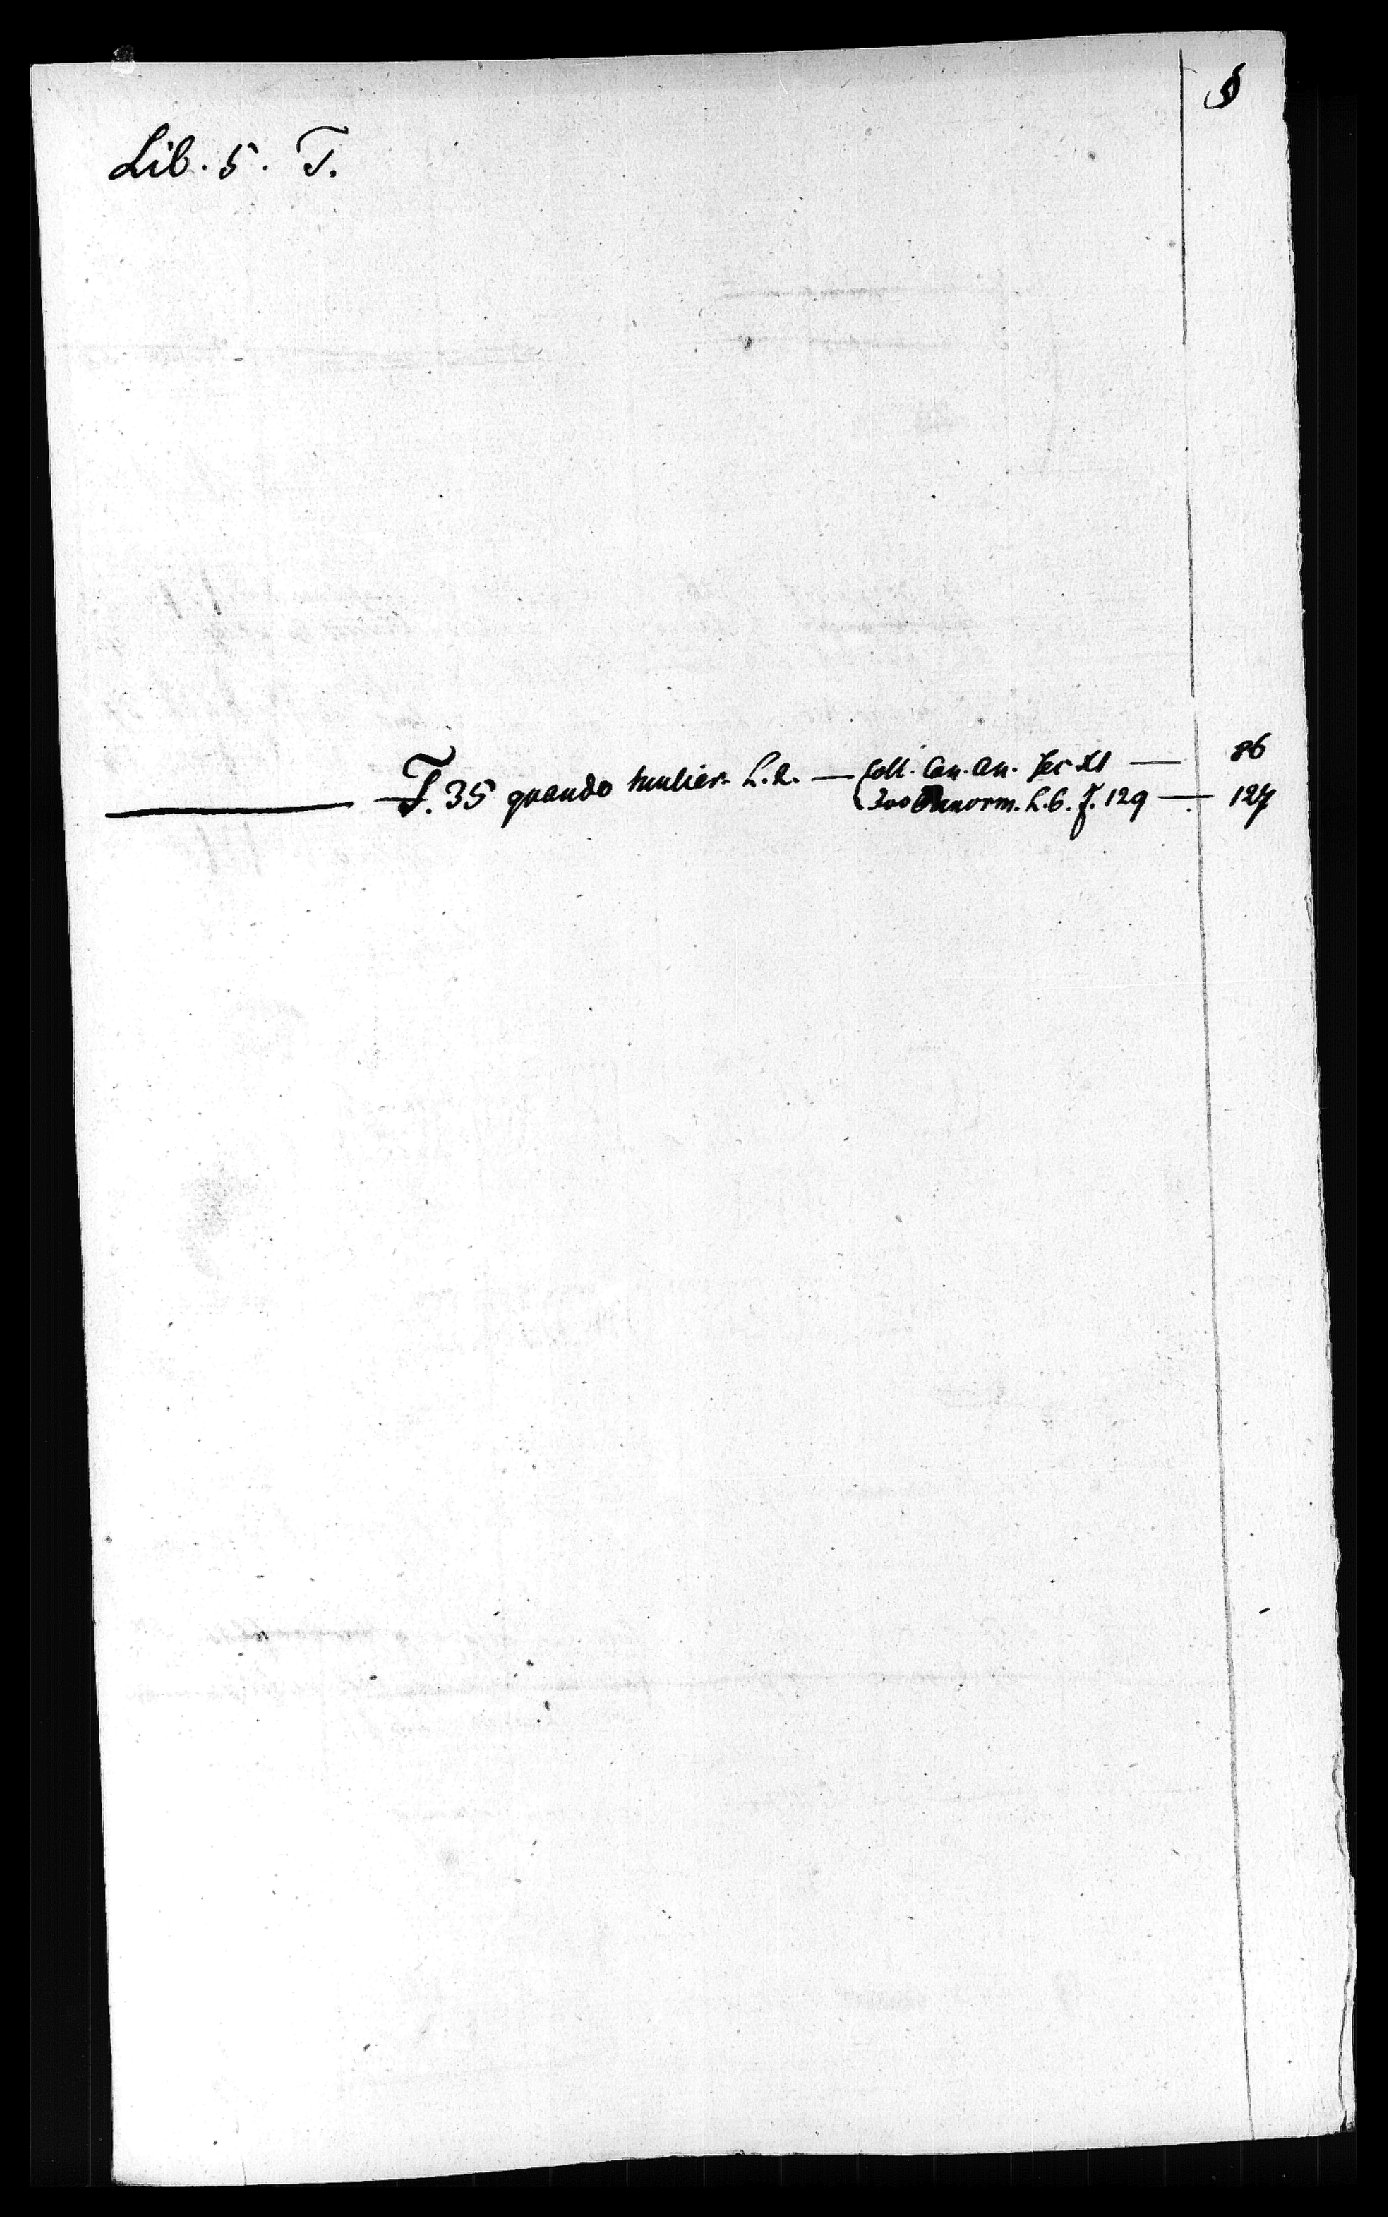 Lib. 5. T.
T. 35 quando mulier. L. 2. — Coll. Can. An. Sec XI — 86
Ivo Pannorm. L. 6. f. 129 — 127